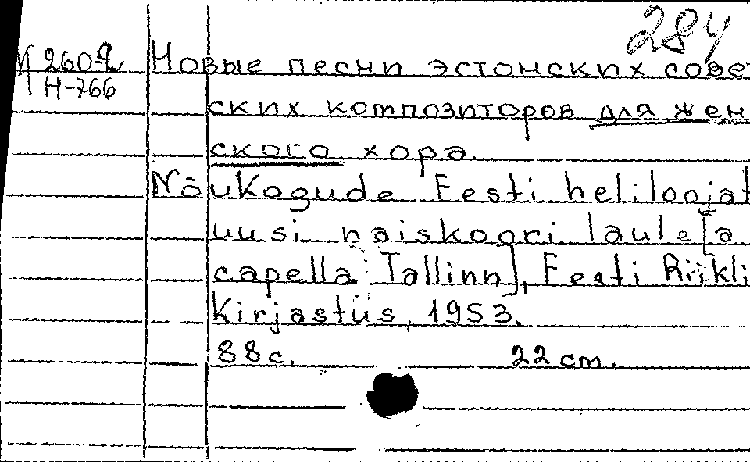 284
М 260-2 Новые песни эстонских совет
Н-766 ских композиторов для жен
ского хора.
Nõukogude Eesti heliloojat
uusi naiskoori laule [a
capella Tallinn], Eesti Riikli
Kirjastus, 1953.
88 с. 22 cm.